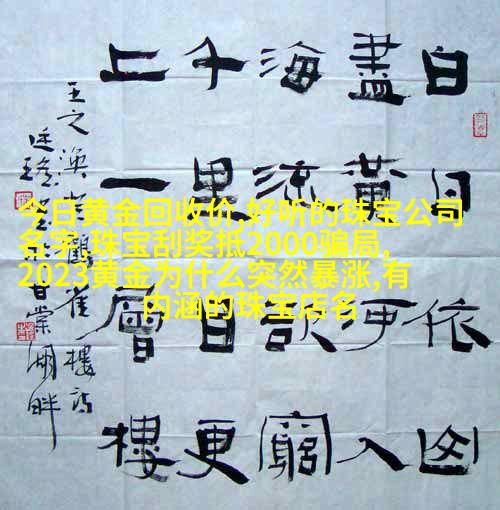 今日黄金回收价,好听的珠宝公司
名字,珠宝刮奖抵2000骗局,
2023黄金为什么突然暴涨,有
内涵的珠宝店名
白日依山
盡黄河入
海流欲窮
千里目更
上一層樓
王之渙登鸛雀樓詩
甘棠湖畔